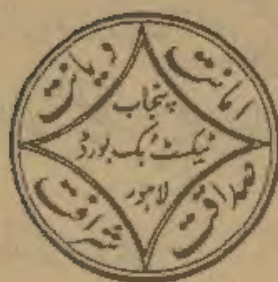 امانت
دیانت
پنجاب
ٹیکسٹ بک بورڈ
لاہور
صداقت
شرافت